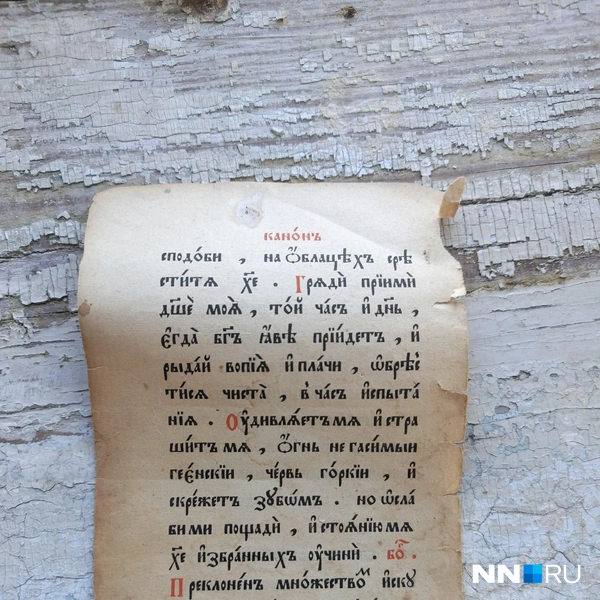 канѡ́нъ
сподо́би , на ѻ҆́блацѣхъ срѣ́
сти́тѧ хе҃ . Грѧдѝ прїимѝ
дꙋшѐ моѧ̀ , то́й ча́съ и҆ дн҃ь ,
є҆гда̀ бг҃ъ ꙗ҆́вѣ прїи́детъ , и҆
рыда́й вопїѧ̀ и҆ пла́чи , ѡ҆брѣ́с
ти́сѧ чиста̀ , в̾ ча́съ и҆спыта́
нїѧ . Оу҆дивлѧ́етъмѧ и҆ стра
ши́тъ мѧ , ѻ҆́гнь не гаси́мыи
гее́нскїи , че́рвь го́ркїи , и҆
скре́жетъ зꙋбѡ́мъ . но ѡ҆сла́
би ми пощадѝ , и҆ стоѧ́нїю мѧ
хе҃ и҆збра́нныхъ оу҆чинѝ . бо҃ .
Преклоне́нъ мно́жеством и҆скꙋ
NN RU